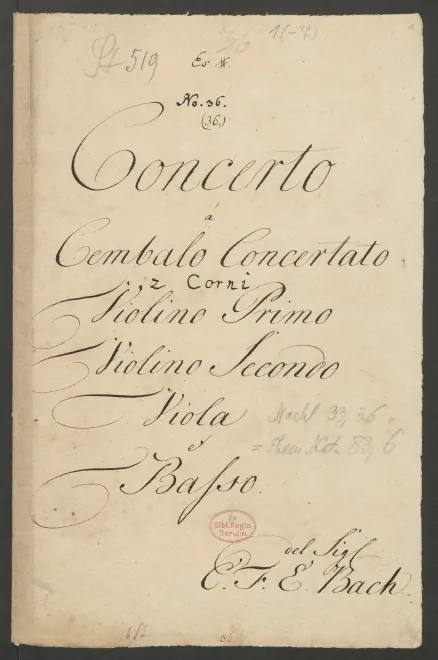 36 1(-7)
St 519
Es #.
No. 36.
(36.)
Concerto
á
Cembalo Concertato
2 Corni
Violino Primo
Violino Secondo
Viola
Nachl 33, 36
e
= 83, 6
Basso.
Ex
Bibl. Regia
Berolin.
del Sigl
C. F. E. Bach.
36